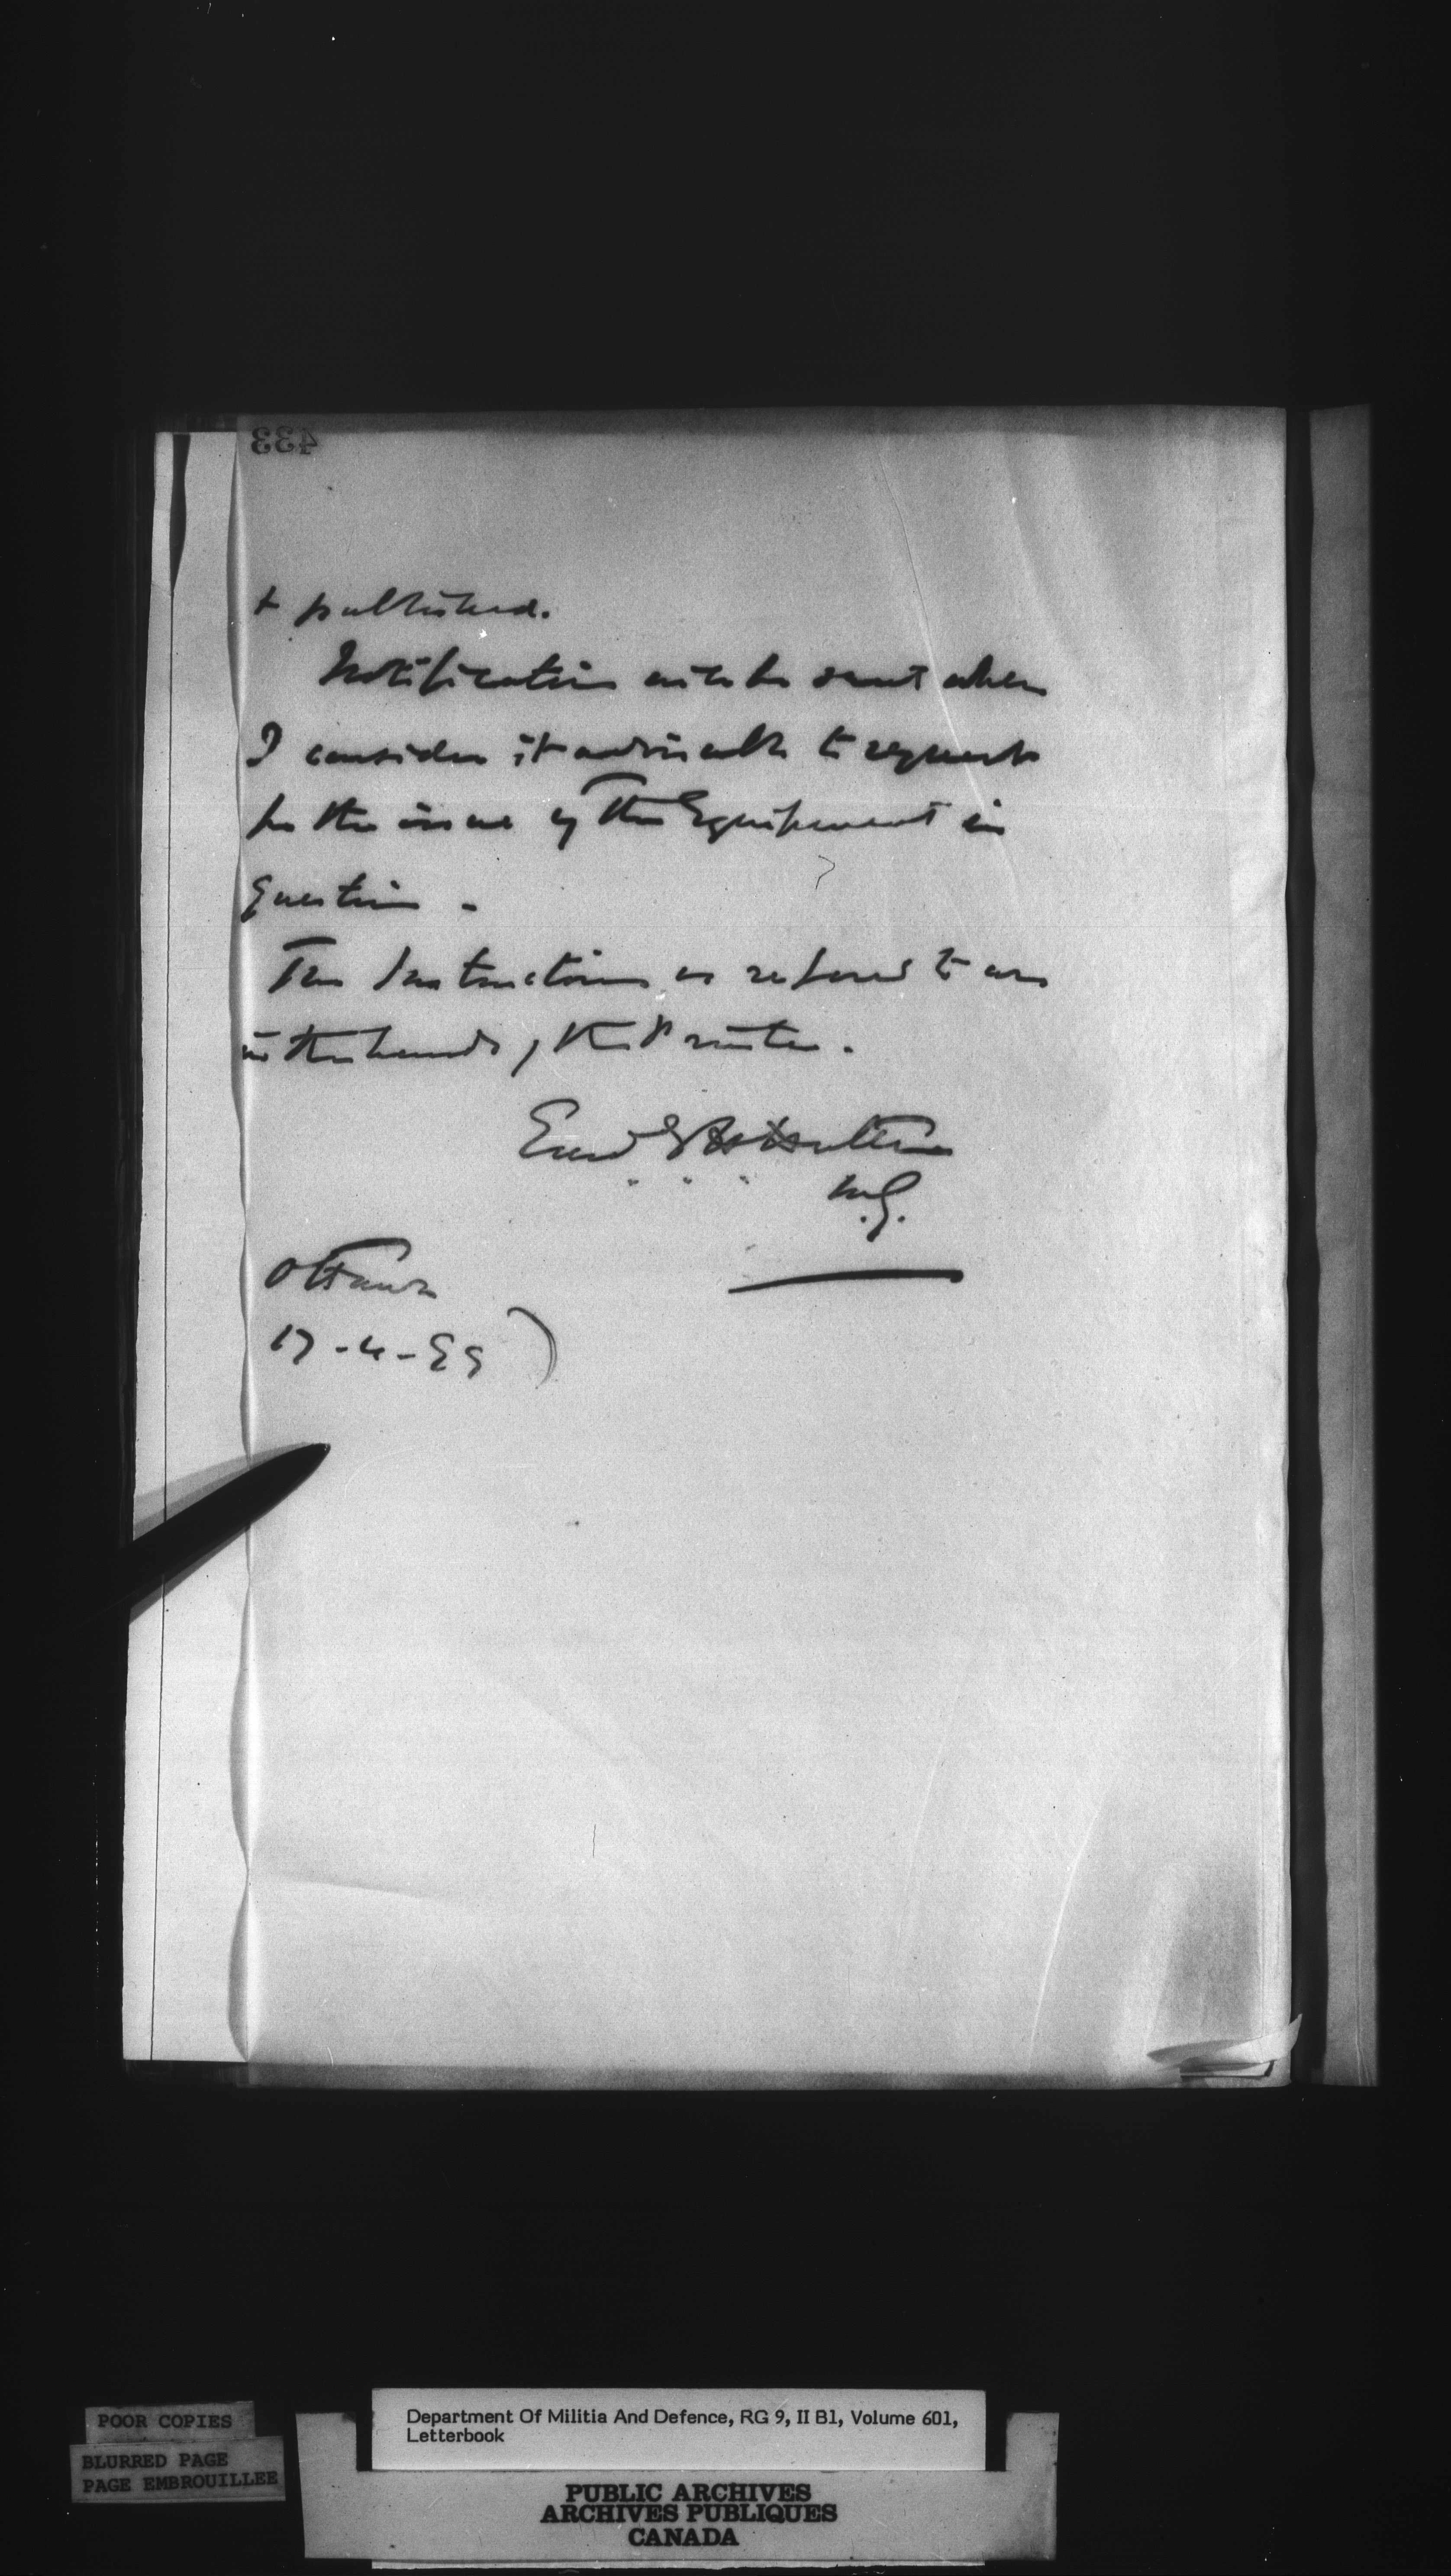 433
+ published.
Notification will be sent when
I consider it advisable to request
for the issue of the Equipment in
question -
The Instructions as refered to are
in the hands of the Printer.
M.G.
Ottawa
17-4-99
POOR COPIES
BLURRED PAGE
PAGE EMBROUILLEE
Department Of Militia And Defence, RG 9, II B1, Volume 601,
Letterbook
PUBLIC ARCHIVES
ARCHIVES PUBLIQUES
CANADA